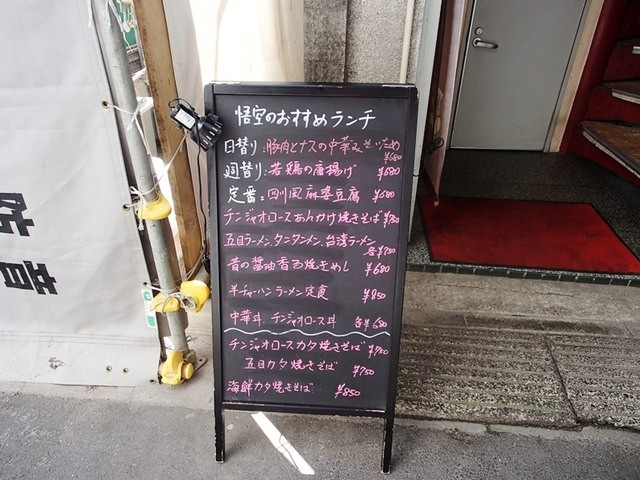 悟空のおすすめランチ
日替り:豚肉とナスの中華みそいため
¥680
週替り:若鶏の唐揚げ ¥680
定番:四川風麻婆豆腐 ¥680
チンジャオロースあんかけ焼きそば
五目ラーメン、タンタンメン、台湾ラーメン
各¥750
昔の醤油香る焼きめし ¥680
半チャーハンラーメン定食 ¥850
中華丼、チンジャオロース丼 各¥680
チンジャオロースカタ焼きそば
五目カタ焼きそば ¥750
海鮮カタ焼きそば ¥850
防音